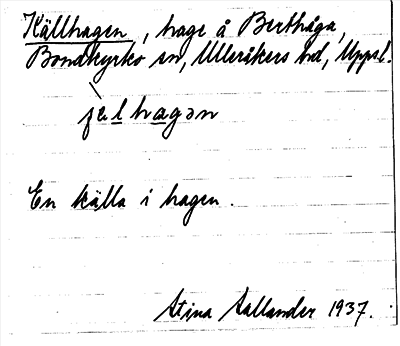 Källhagen, hage å Berthåga,
Bondkyrko sn, Ulleråkers hd, Uppsl.
En källa i hagen.
Stina Aallander 1937.